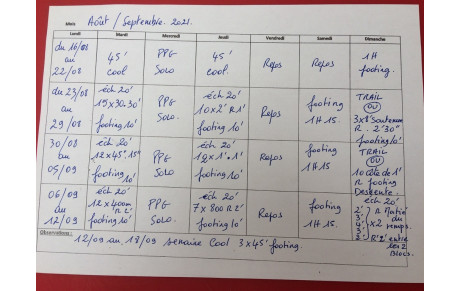 Mois Août / Septembre. 2021.
Lundi Mardi Mercredi Jeudi Vendredi Samedi Dimanche
du 16/08 au 22/08
45' cool
PPG Solo
45' cool.
Repos
Repos
1H footing.
du 23/08 au 29/08
éch 20'
15x30.30'
footing 10'
PPG Solo.
éch 20'
10x2' R1'
footing 10'
Repos
footing 1H15
TRAIL
OU
3x8' soutenu
R. 2'30"
footing 10'
30/08 au 05/09
éch 20'
12x45".15"
footing 10'
PPG Solo.
éch 20'
10x1'.1'
footing 10'
Repos
footing 1H15
TRAIL
OU
10 côte de 1'
R footing
Descente.
06/09 au 12/09
éch 20'
12x400m
footing 10'
PPG Solo.
éch 20'
7x800 R2'
footing 10'
Repos
footing 1H15.
éch 20'
x2
R
du temps.
entre les 2 Blocs.
Observations : 12/09 au 18/09 semaine Cool 3x45' footing.